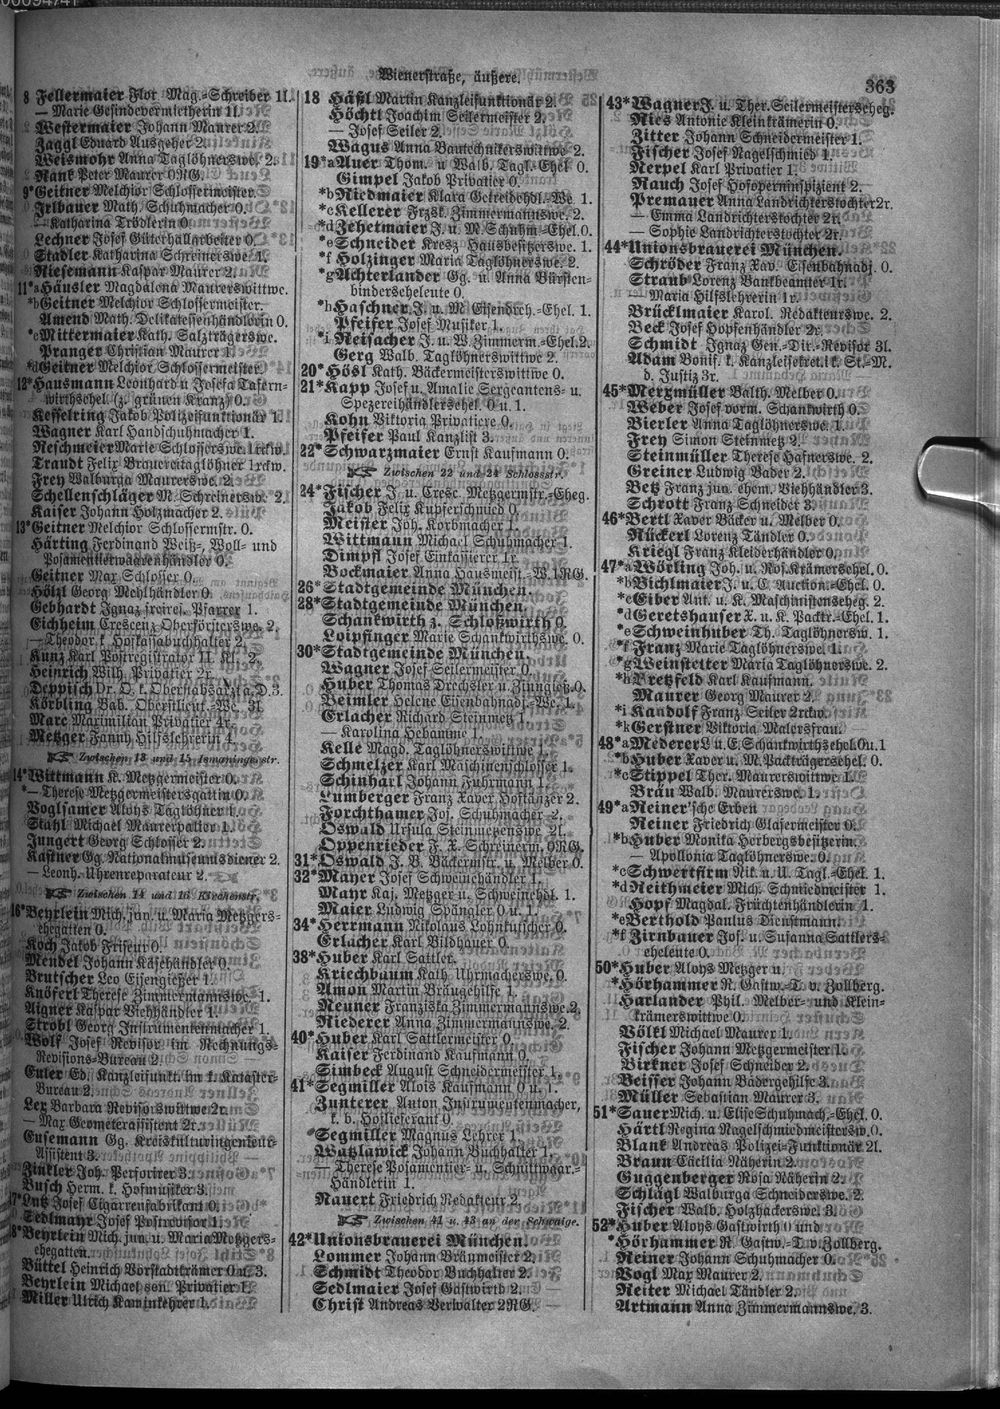 00094741
Wienerstraße, äußere.
363
8 Fellermaier Flor. Mag.-Schreiber 1l.
— Marie Gesindevermietherin 1l.
Westermaier Johann Maurer 2.
Jaggl Eduard Ausgeher 2.
Weismohr Anna Taglöhnerswe. 2.
Rank Peter Maurer 0RG.
9* Geitner Melchior Schlossermeister
Irlbauer Math. Schuhmacher 0.
— Katharina Trödlerin 0.
Lechner Josef Güterhallarbeiter 0.
Stadler Katharina Schreinerswe. 1.
Riesemann Kaspar Maurer 2.
11*a Häusler Magdalena Maurerswittwe.
*b Geitner Melchior Schlossermeister.
Amend Math. Delikatessenhändlerin 0.
*c Mittermaier Kath. Salzträgerswe.
Pranger Christian Maurer 1.
*d Geitner Melchior Schlossermeister.
12* Hausmann Leonhard u. Josefa Tafern-
wirthsehel. (z. grünen Kranz) 0.
Kesselring Jakob Polizeifunktionär 1.
Wagner Karl Handschuhmacher 1.
Reschmeier Marie Schlosserswe. 1rckw.
Traudt Felix Brauereitaglöhner 1rckw.
Frey Walburga Maurerswe. 2.
Schellenschläger M. Schreinersw. 2.
Kaiser Johann Holzmacher 2.
13* Geitner Melchior Schlossermstr. 0.
Härting Ferdinand Weiß-, Woll- und
Posamentierwaarenhändler 0.
Geitner Max Schlosser 0.
Hölzl Georg Mehlhändler 0.
Gebhardt Ignaz freires. Pfarrer 1.
Eichheim Crescenz Oberförsterswe. 2.
— Theodor k. Hofkassabuchhalter 2.
Kunz Karl Postregistrator II. Kl. 2.
Heinrich Wilh. Privatier 2r.
Deppisch Dr. O. k. Oberstabsarzt a. D. 3.
Körbling Bab. Oberstlieut.-We. 3l.
Marc Maximilian Privatier 4r.
Metzger Fanny Hilfslehrerin 4.
☞ Zwischen 13 und 15 Ismaningerstr.
14* Wittmann K. Metzgermeister 0.
*— Therese Metzgermeistersgattin 0.
Voglsamer Aloys Taglöhner 1.
Stahl Michael Maurerpalier 1.
Jungert Georg Schlosser 2.
Kastner Gg. Nationalmuseumsdiener 2.
— Leonh. Uhrenreparateur 2.
☞ Zwischen 14 und 16 Kirchenstr.
16* Beyrlein Mich. jun. u. Maria Metzgers-
ehegatten 0.
Koch Jakob Friseur 0.
Mendel Johann Käsehändler 0.
Brutscher Leo Eisengießer 1.
Knöferl Therese Zimmermannswe. 1.
Aigner Kaspar Viehhändler 1.
Strobl Georg Instrumentenmacher 1.
Wolf Josef Revisor im Rechnungs-
Revisions-Bureau 2.
Euler Ed. Kanzleifunkt. im k. Kataster-
Bureau 2.
Lex Barbara Revisorswittwe 2r.
— Max Geometerassistent 2r.
Eusemann Gg. Kreiskulturingenieur-
Assistent 3.
Zinkler Joh. Perforirer 3.
Busch Herm. k. Hofmusiker 3.
17* Lutz Josef Cigarrenfabrikant 0.
Sedlmayr Josef Postrevisor 1.
18* Beyrlein Mich. jun. u. Maria Metzgers-
ehegatten.
Büttel Heinrich Vorstadtkrämer 0 u. 3.
Beyrlein Michael sen. Privatier 1.
Miller Ulrich Kaminkehrer 1.
18 Häßl Martin Kanzleifunktionär 2.
Höchtl Joachim Seilermeister 2.
— Josef Seiler 2.
Wagus Anna Bautechnikerswittwe 2.
19*a Auer Thom. u. Walb. Tagl.-Ehel. 0.
Gimpel Jakob Privatier 0.
*b Riedmaier Klara Getreidehdl.-We. 1.
*c Kellerer Frzsk. Zimmermannswe. 2.
*d Zehetmaier J. u. M. Schuhm.-Ehel. 0.
*e Schneider Kresz. Hausbesitzerswe. 1.
*f Holzinger Maria Taglöhnerswe. 2.
*g Achterlander Gg. u. Anna Bürsten-
bindersehe­leute 0.
*h Haschner J. u. M. Eisendreh.-Ehel. 1.
Pfeifer Josef Musiker 1.
*i Reisacher J. u. W. Zimmerm.-Ehel. 2.
Gerg Walb. Taglöhnerswittwe 2.
20* Hösl Kath. Bäckermeisterswittwe 0.
21* Kapp Josef u. Amalie Sergeantens- u.
Spezereihändlersehel. 0 u. 1.
Kohn Viktoria Privatiere 0.
Pfeifer Paul Kanzlist 3.
22* Schwarzmaier Ernst Kaufmann 0.
☞ Zwischen 22 und 24 Schlossstr.
24* Fischer J. u. Cresc. Metzgermstr.-Eheg.
Jakob Felix Kupferschmied 0.
Meister Joh. Korbmacher 1.
Wittmann Michael Schuhmacher 1.
Dimpfl Josef Einkassierer 1r.
Bockmaier Anna Hausmeist.-W. 1RG.
26* Stadtgemeinde München.
28* Stadtgemeinde München.
Schankwirth z. Schloßwirth 0.
Loipfinger Marie Schankwirthswe. 0.
30* Stadtgemeinde München.
Wagner Josef Seilermeister 0.
Huber Thomas Drechsler u. Zinngieß. 0.
Beimler Helene Eisenbahnadj.-We. 1.
Erlacher Richard Steinmetz 1.
— Karolina Hebamme 1.
Kelle Magd. Taglöhnerswittwe 1.
Schmelzer Karl Maschinenschlosser 1.
Schinharl Johann Fuhrmann 1.
Lumberger Franz Xaver Hoftänzer 2.
Forchthamer Jos. Schuhmacher 2.
Oswald Ursula Steinmetzenswe. 2l.
Oppenrieder F. X. Schreinerm. 0RG.
31* Oswald J. B. Bäckermstr. u. Melber 0.
32* Mayer Josef Schweinehändler 1.
Mayr Kaj. Metzger u. Schweinehdl. 1.
Maier Ludwig Spängler 0 u. 1.
34* Herrmann Nikolaus Lohnkutscher 0.
Erlacher Karl Bildhauer 0.
38* Huber Karl Sattler.
Kriechbaum Kath. Uhrmacherswe. 0.
Amon Martin Bräugehilfe 1.
Neuner Franziska Zimmermannswe. 2.
Niederer Anna Zimmermannswe. 2.
40* Huber Karl Sattlermeister 0.
Kaiser Ferdinand Kaufmann 0.
Simbeck August Schneidermeister 1.
41* Segmiller Alois Kaufmann 0 u. 1.
Zunterer Anton Instrumentenmacher,
k. b. Hoflieferant 0.
*Segmiller Magnus Lehrer 1.
Watzlawick Johann Buchhalter 1.
— Therese Posamentier- u. Schnittwaar.-
Händlerin 1.
Nauert Friedrich Redakteur 2.
☞ Zwischen 41 u. 43 an der Schwaige.
42* Unionsbrauerei München.
Lommer Johann Bräumeister 2.
Schmidt Theodor Buchhalter 2.
Sedlmaier Josef Gastwirth 2.
Christ Andreas Verwalter 2RG.
43* Wagner J. u. Ther. Seilermeisterseheg.
Ries Antonie Kleinkrämerin 0.
Zitter Johann Schneidermeister 1.
Fischer Josef Nagelschmied 1.
Nerpel Karl Privatier 1.
Rauch Josef Hofoperninspizient 2.
Premauer Anna Landrichterstochter 2r.
— Emma Landrichterstochter 2r.
— Sophie Landrichterstochter 2r.
44* Unionsbrauerei München.
Schröder Franz Xav. Eisenbahnadj. 0.
Straub Lorenz Bankbeamter 1r.
Maria Hilfslehrerin 1r.
Brücklmaier Karol. Redakteurswe. 2.
Beck Josef Hopfenhändler 2r.
Schmidt Ignaz Gen.-Dir.-Revisor 3l.
Adam Bonif. k. Kanzleisekret. i. k. St.-M.
d. Justiz 3r.
45* Merxmüller Balth. Melber 0.
Weber Josef vorm. Schankwirth 0.
Bierler Anna Taglöhnerswe. 1.
Frey Simon Steinmetz 2.
Steinmüller Therese Hafnerswe. 2.
Greiner Ludwig Bader 2.
Betz Franz jun. ehem. Viehhändler 3.
Schrott Franz Schneider 3.
46* Bertl Xaver Bäcker u. Melber 0.
Rückerl Lorenz Tändler 0.
Kriegl Franz Kleiderhändler 0.
47*a Wörling Joh. u. Ros. Krämersehel. 0.
*b Bichlmaier J. u. C. Auction.-Ehel. 0.
*c Eiber Ant. u. K. Maschinistenseheg. 2.
*d Geretshauser X. u. K. Packtr.-Ehel. 1.
*e Schweinhuber Th. Taglöhnersw. 1.
*f Franz Marie Taglöhnerswe. 1.
*g Weinstetter Maria Taglöhnerswe. 2.
*h Bretzfeld Karl Kaufmann.
Maurer Georg Maurer 2.
*i Kandolf Franz Seiler 2rckw.
*k Gerstner Viktoria Malersfrau.
48*a Mederer L. u. E. Schankwirthsehel. 0 u. 1
*b Huber Xaver u. M. Packträgersehel. 0.
*c Stippel Ther. Maurerswittwe 1.
Bräu Walb. Maurerswe. 1.
49*a Reiner'sche Erben
Reiner Friedrich Glasermeister 0.
*b Huber Monika Herbergsbesitzerin.
— Apollonia Taglöhnerswe. 0.
*c Schwertfirm Nik. u. U. Tagl.-Ehel. 1.
*d Reithmeier Mich. Schmiedmeister 1.
Hopf Magdal. Früchtenhändlerin 1.
*e Berthold Paulus Dienstmann.
*f Zirnbauer Jos. u. Susanna Sattlers-
eheleute 0.
50* Huber Aloys Metzger u.
*Hörhammer R. Gastw.-T. v. Zollberg.
Harlander Phil. Melber- und Klein-
krämerswittwe 0.
Völkl Michael Maurer 1.
Fischer Johann Metzgermeister 1.
Birkner Josef Schneider 2.
Beisser Johann Badergehilfe 3.
Müller Sebastian Maurer 3.
51* Sauer Mich. u. Elise Schuhmach.-Ehel. 0.
Härtl Regina Nagelschmiedmeistersw. 0.
Blank Andreas Polizei-Funktionär 2l.
Braun Cäcilia Näherin 2.
Guggenberger Rosa Näherin 2.
Schlägl Walburga Schneiderswe. 2.
Fischer Walb. Holzhackerswe. 3.
52* Huber Aloys Gastwirth 0 und
*Hörhammer R. Gastw.-T. v. Zollberg.
Reiner Johann Schuhmacher 0.
Vogl Max Maurer 2.
Reiter Michael Tändler 2.
Artmann Anna Zimmermannswe. 3.